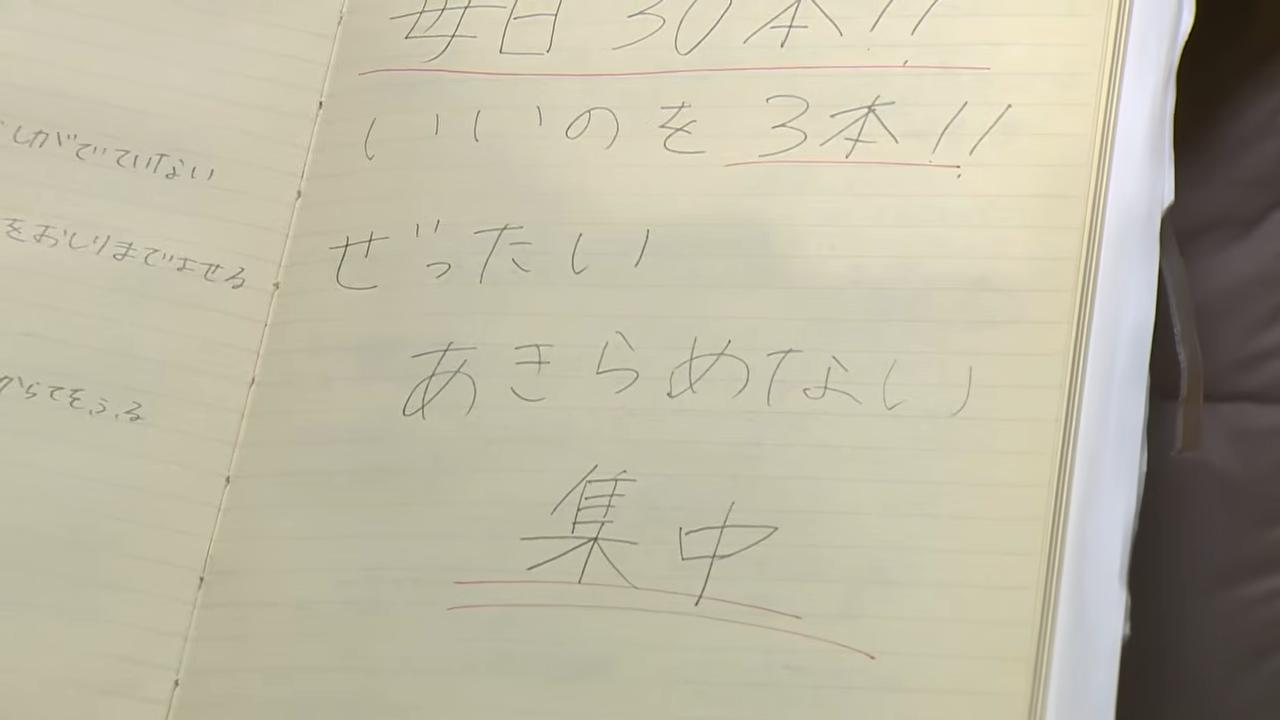 しがでていない
をおしりまでよせる
からてをふる
毎日30本!!
いいのを3本!!
ぜったい
あきらめない
集中